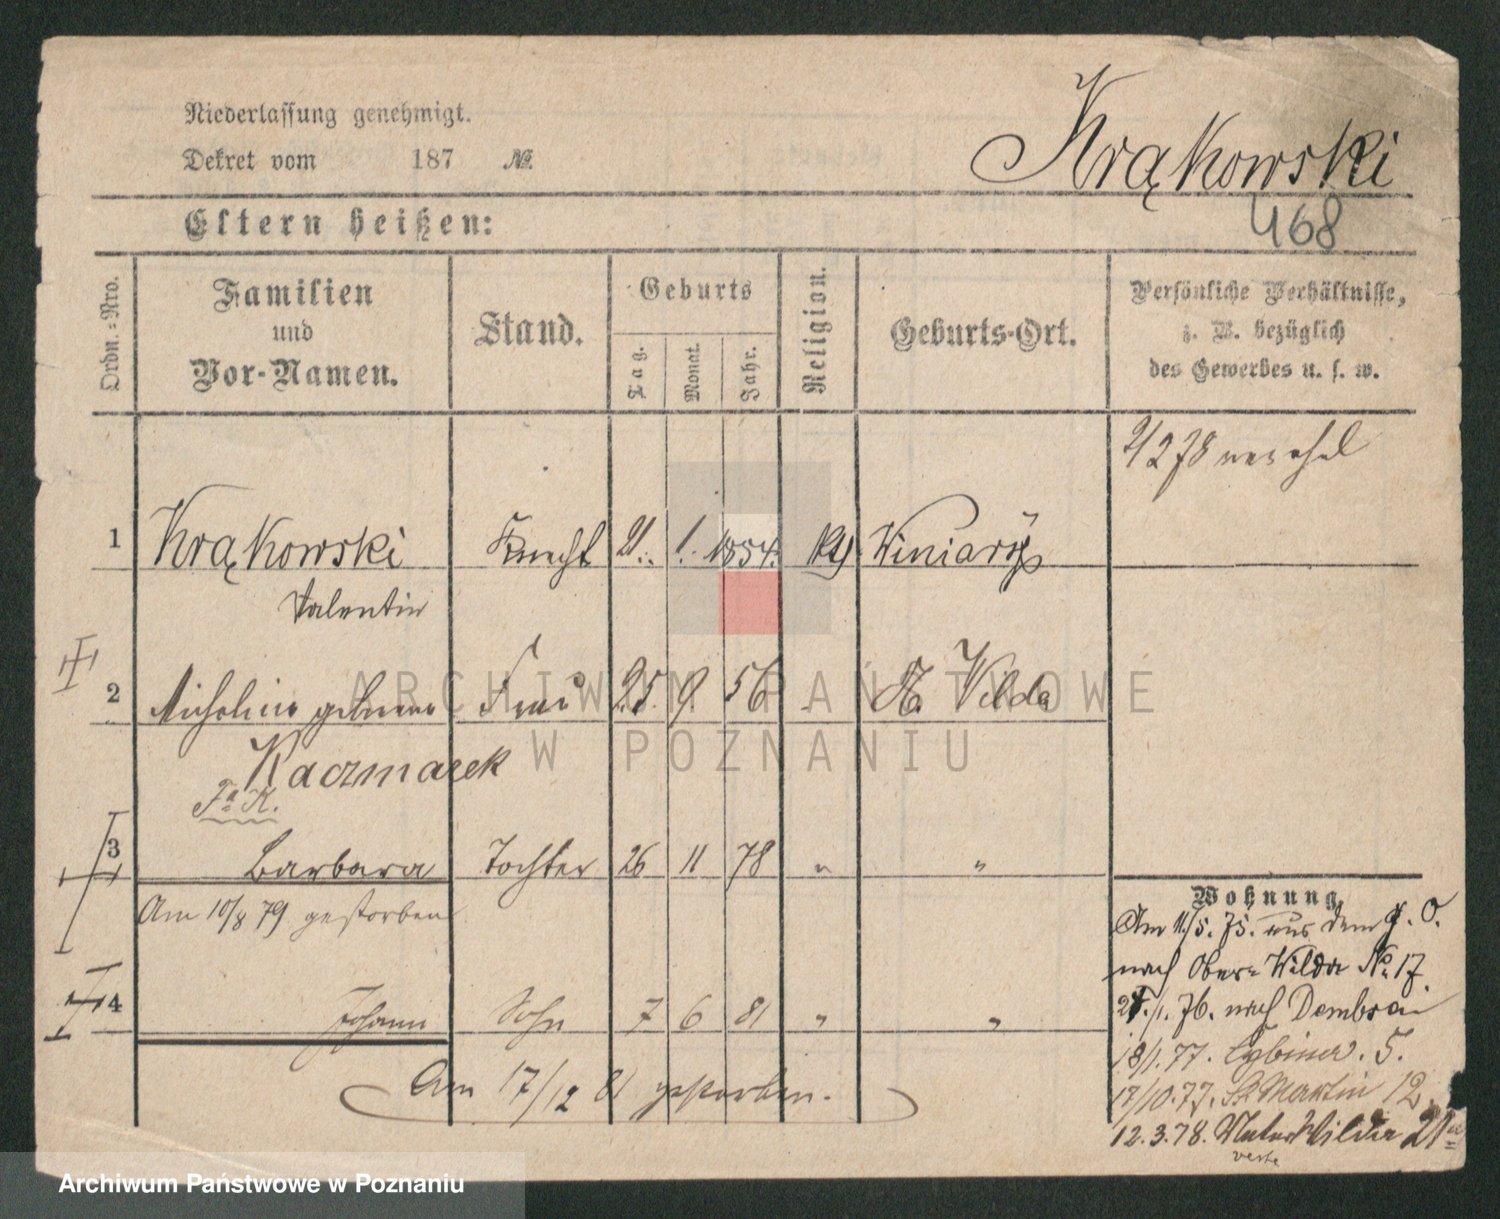 Niederlassung genehmigt.
Dekret vom 187 №
Krąkowski
468
Eltern heißen:
Ordn.-Nro.
Familien
und
Vor-Namen.
Stand.
Geburts
Tag.
Monat.
Jahr.
Religion.
Geburts-Ort.
Persönliche Verhältnisse,
z. B. bezüglich
des Gewerbes u. s. w.
2/2 78 verehel
1 Krąkowski Knecht 21. 1. 1854. kth Winiary
Valentin
2 Michalina geborene Frau 25. 9 56 Wilda
Kaczmarek
Fa K.
3 Barbara Tochter 26 11 78 " "
Am 10/8 79 gestorben
4 Johann Sohn 7 6 81 " "
Am 17/12 81 gestorben.
Wohnung.
Am 11./5. 75. aus dem
nach Ober-Wilda No. 17
/1. 76. nach Dembsen
18/1. 77. 5.
17/10.77. St Martin 12.
12.3.78. Unter Wilda 21
ARCHIWUM PAŃSTWOWE
W POZNANIU
Archiwum Państwowe w Poznaniu